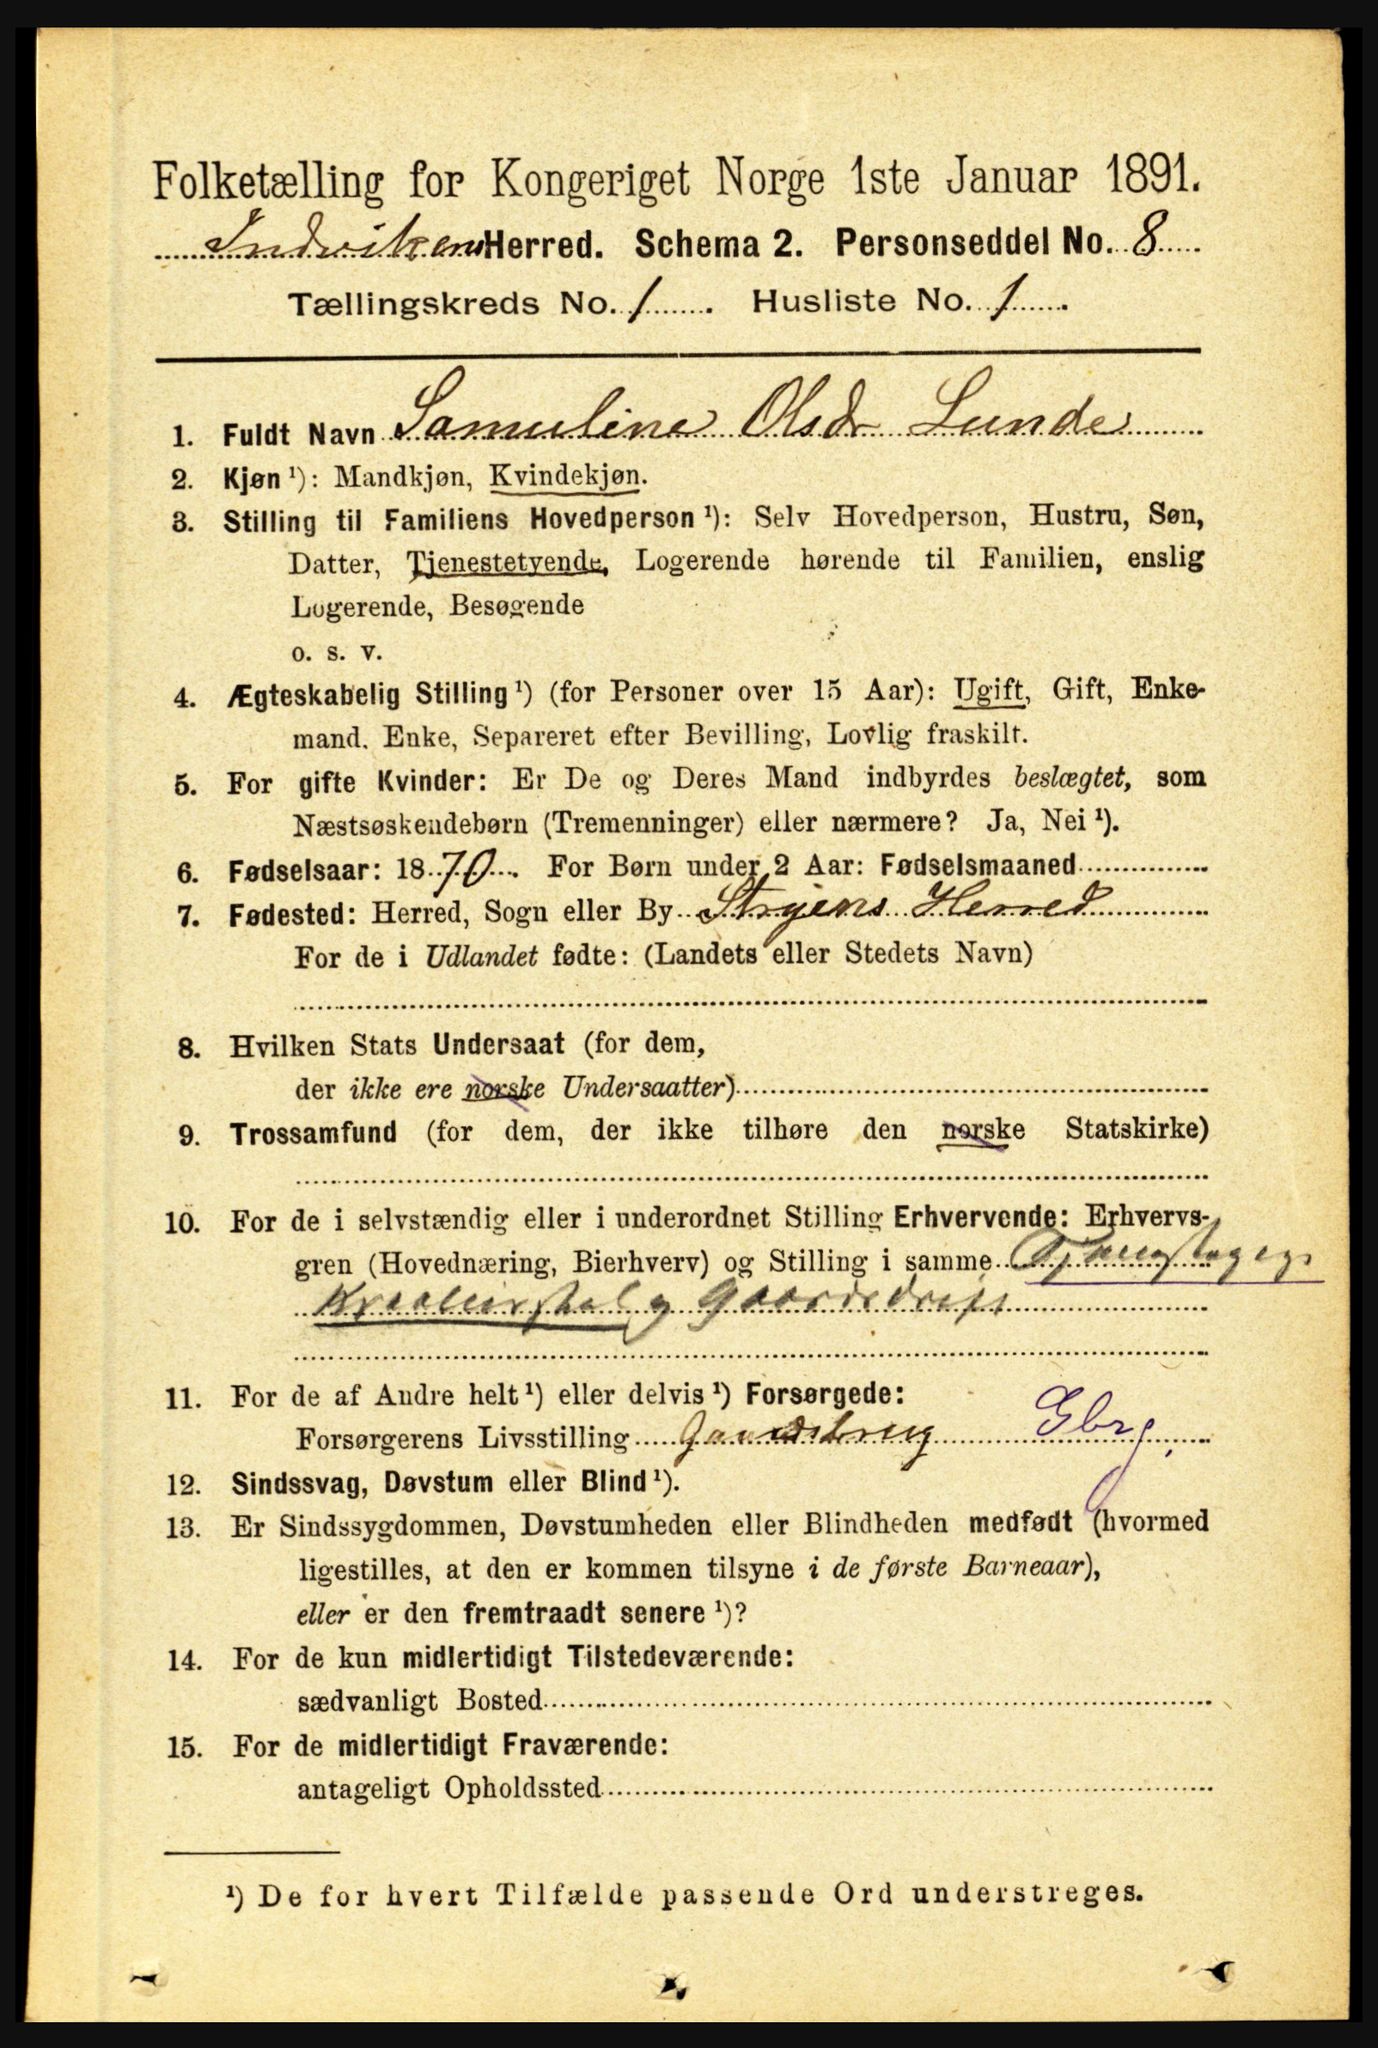 Folketælling for Kongeriget Norge 1ste Januar 1891.
Indvikens Herred. Schema 2. Personseddel No. 8
Tællingskreds No. 1. Husliste No. 1.
1. Fuldt Navn Samuline Olsdr Lunde
2. Kjøn ¹): Mandkjøn, Kvindekjøn.
3. Stilling til Familiens Hovedperson ¹): Selv Hovedperson, Hustru, Søn,
Datter, Tjenestetyende, Logerende hørende til Familien, enslig
Logerende, Besøgende
o. s. v.
4. Ægteskabelig Stilling ¹) (for Personer over 15 Aar): Ugift, Gift, Enke-
mand. Enke, Separeret efter Bevilling, Lovlig fraskilt.
5. For gifte Kvinder: Er De og Deres Mand indbyrdes beslægtet, som
Næstsøskendebørn (Tremenninger) eller nærmere? Ja, Nei ¹).
6. Fødselsaar: 1870. For Børn under 2 Aar: Fødselsmaaned
7. Fødested: Herred, Sogn eller By Stryens Herred
For de i Udlandet fødte: (Landets eller Stedets Navn)
8. Hvilken Stats Undersaat (for dem,
der ikke ere norske Undersaatter)
9. Trossamfund (for dem, der ikke tilhøre den norske Statskirke)
10. For de i selvstændig eller i underordnet Stilling Erhvervende: Erhvervs-
gren (Hovednæring, Bierhverv) og Stilling i samme
Kreaturstel og Gaardsdrift
11. For de af Andre helt ¹) eller delvis ¹) Forsørgede:
Forsørgerens Livsstilling Gaardsbrug Gbr.
12. Sindssvag, Døvstum eller Blind ¹).
13. Er Sindssygdommen, Døvstumheden eller Blindheden medfødt (hvormed
ligestilles, at den er kommen tilsyne i de første Barneaar),
eller er den fremtraadt senere ¹)?
14. For de kun midlertidigt Tilstedeværende:
sædvanligt Bosted
15. For de midlertidigt Fraværende:
antageligt Opholdssted
¹) De for hvert Tilfælde passende Ord understreges.